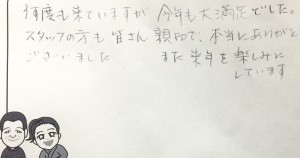 何度も来ていますが 今年も大満足でした。
スタッフの方も皆さん親切で、本当にありがと
ございました　また来年を楽しみに
しています